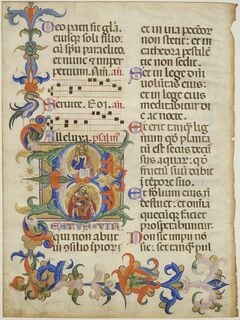 Deo patri sit gľa
eiusq soli filio
cū spū paraclito
et nunc et imper
petuum. Am. añ.
Seruite. E o1. añ.
Alleluya. psalm9
BEATUS VIR
qui non abiit
ī 9silio īpioꝝ
et in uia peccator
non stetit: et in
cathedra pestile
tie non sedit:
Set in lege dn̄i
uoluntas eius:
et in lege eius
meditabitur di
e ac nocte.
Et erit tāq lig
num qđ planta
tū est secus decur
sus aquaꝝ: qđ
fructū suū dabit
ī tp̄ore suo.
Et folium eius ñ
defluet: et omnia
quecūq faciet
prosperabuntur.
Non sic impii ñ
sic: set tamq pul